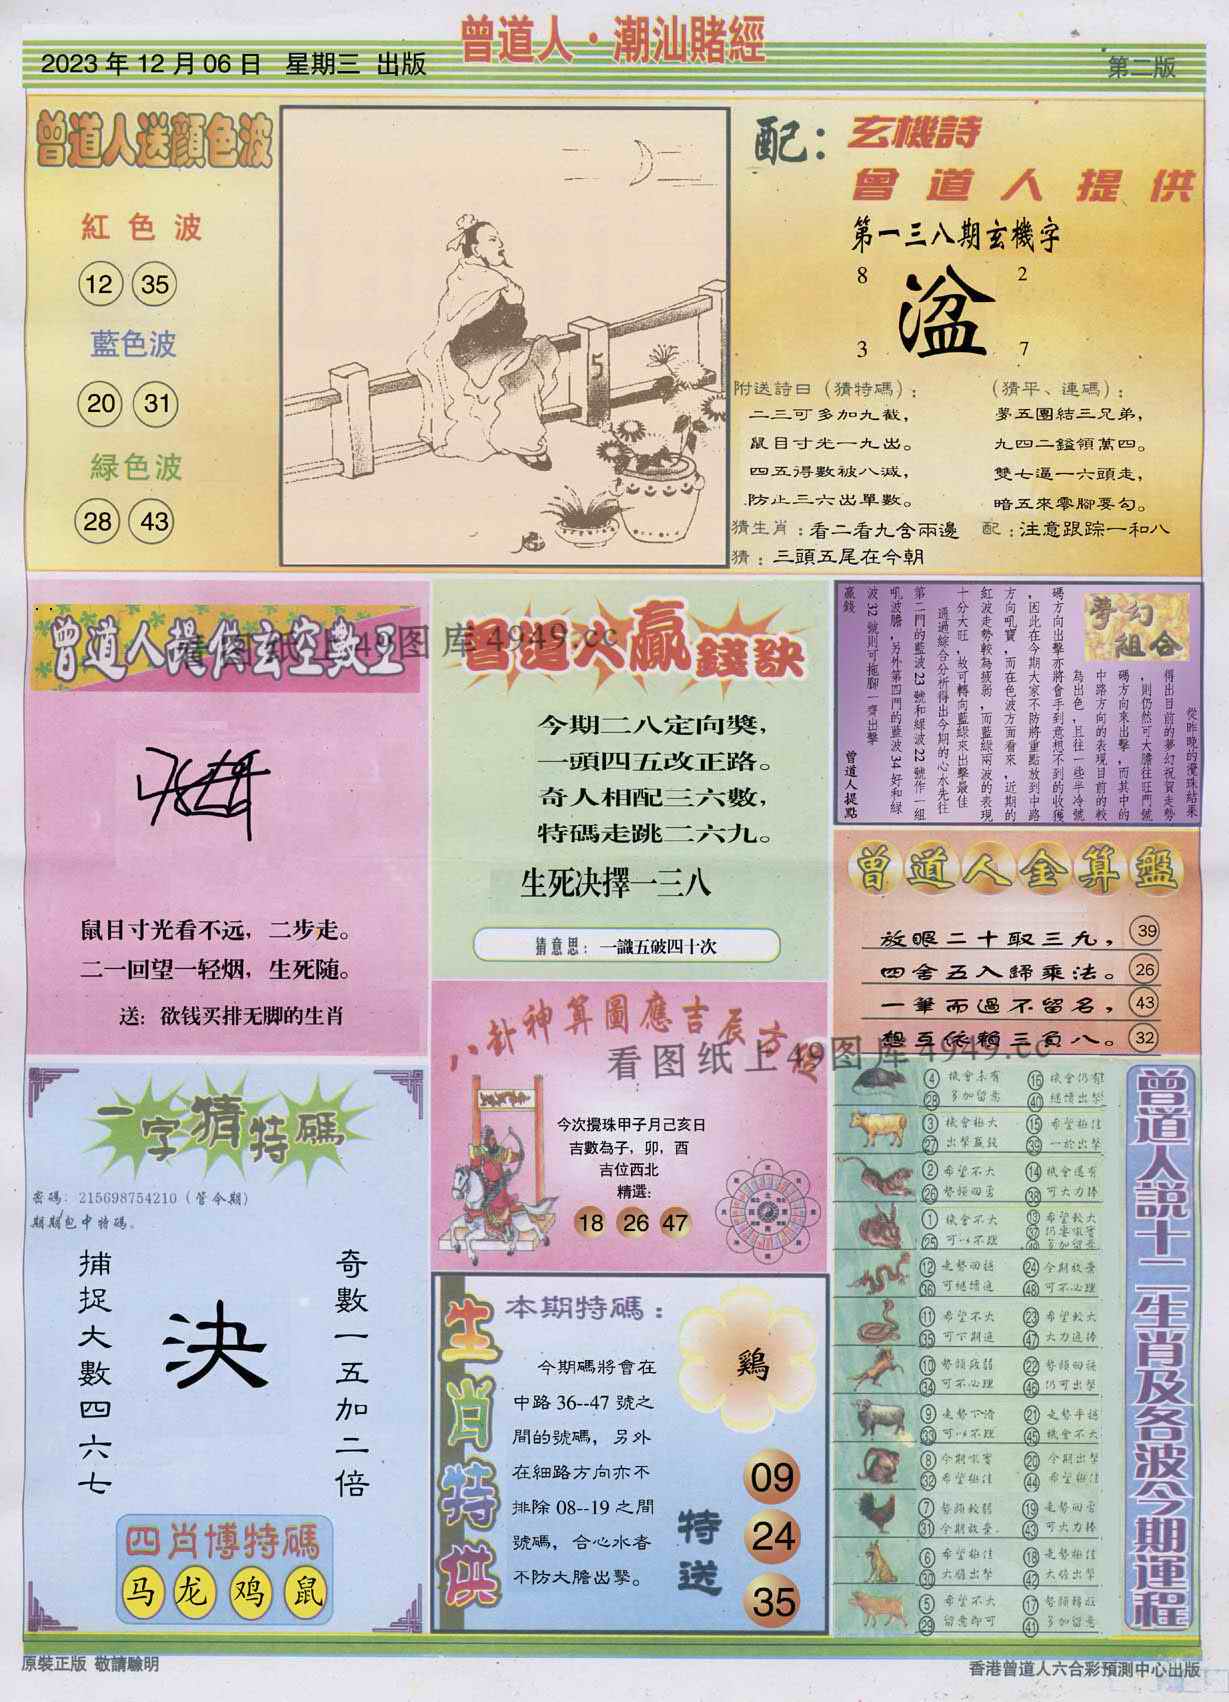 曾道人·潮汕賭經
2023年12月06日 星期三 出版
第二版
曾道人送顏色波
紅色波
12 35
藍色波
20 31
緑色波
28 43
5
配：
玄機詩
曾道人提供
第一三八期玄機字
8 2
溢
3 7
附送詩曰（猜特碼）：
二三可多加九截，
鼠目寸光一九出。
四五得數被八減，
防止三六出單數。
（猜平、連碼）：
夢五團結三兄弟，
九四二鎰領萬四。
雙七逼一六頭走，
暗五來零腳要勾。
猜生肖：看二看九含兩邊
配：注意跟踪一和八
猜：三頭五尾在今朝
曾道人提供玄空數王
鼠目寸光看不远，二步走。
二一回望一轻烟，生死随。
送：欲钱买排无脚的生肖
曾道人贏錢訣
今期二八定向獎，
一頭四五改正路。
奇人相配三六數，
特碼走跳二六九。
生死决擇一三八
猜意思：一識五破四十次
夢幻組合
從昨晚的攪珠結果
得出目前的夢幻祝賀走勢
，則仍然可大膽往旺門號
碼方向來出擊，而其中的
中路方向的表現目前的較
為出色，且往一些半冷號
碼方向出擊亦將會手到意想不到的收獲
，因此在今期大家不防將重點放到中路
方向吼寶，而在色波方面看來，近期的
紅波走勢較為疲弱，而藍綠兩波的表現
十分大旺，故可轉向藍綠來出擊最佳
通過綜合分析得出今期的心水先往
第二門的藍波23號和綠波22號作一組
吼波膽，另外第四門的藍波34好和綠
波32號則可拖腳一齊出擊
贏錢
曾道人提點
曾道人金算盤
放眼二十取三九， 39
四舍五入歸乘法。 26
一筆而過不留名， 43
想互依賴三負八。 32
看图纸上49图库4949.cc
看图纸上49图库4949.cc
八卦神算圖應吉辰方位
今次攪珠甲子月己亥日
吉數為子，卯，酉
吉位西北
精選:
18 26 47
一字猜特碼
密碼: 215698754210（管今期）
期期包中特碼。
捕捉大數四六七
決
奇數一五加二倍
四肖博特碼
马 龙 鸡 鼠
生肖特供
本期特碼：
今期碼將會在
中路36--47號之
間的號碼，另外
在細路方向亦不
排除08--19之間
號碼，合心水者
不防大膽出擊。
鷄
特送
09
24
35
曾道人說十二生肖及各波今期運程
4 機會未有 16 機會仍有
28 多加留意 40 繼續出擊
3 機會極大 15 希望極佳
27 出擊贏錢 39 一於出擊
2 希望不大 14 機會還有
26 勢頭回寫 38 可大力捧
1 機會不大 13 希望較大
25 可以不理 37
12 走勢回穩 24 今期放棄
36 可繼續追 48 可不必理
11 希望不大 23 希望較大
35 可下期追 47 大力追捧
10 勢頭疲弱 22 勢頭回穩
34 可不必理 46 仍可出擊
9 走勢下滑 21 走勢平穩
33 可以不理 45 機會不大
8 今期吼實 20 今期出擊
32 希望極佳 44 希望極佳
7 勢頭較弱 19 走勢回寫
31 今期放棄 43 可大力捧
6 希望極佳 18 走勢極佳
30 大膽出擊 42 大膽出擊
5 希望不大 17 勢頭轉旺
29 留意即可 41 多加留意
原裝正版 敬請驗明
香港曾道人六合彩預測中心出版